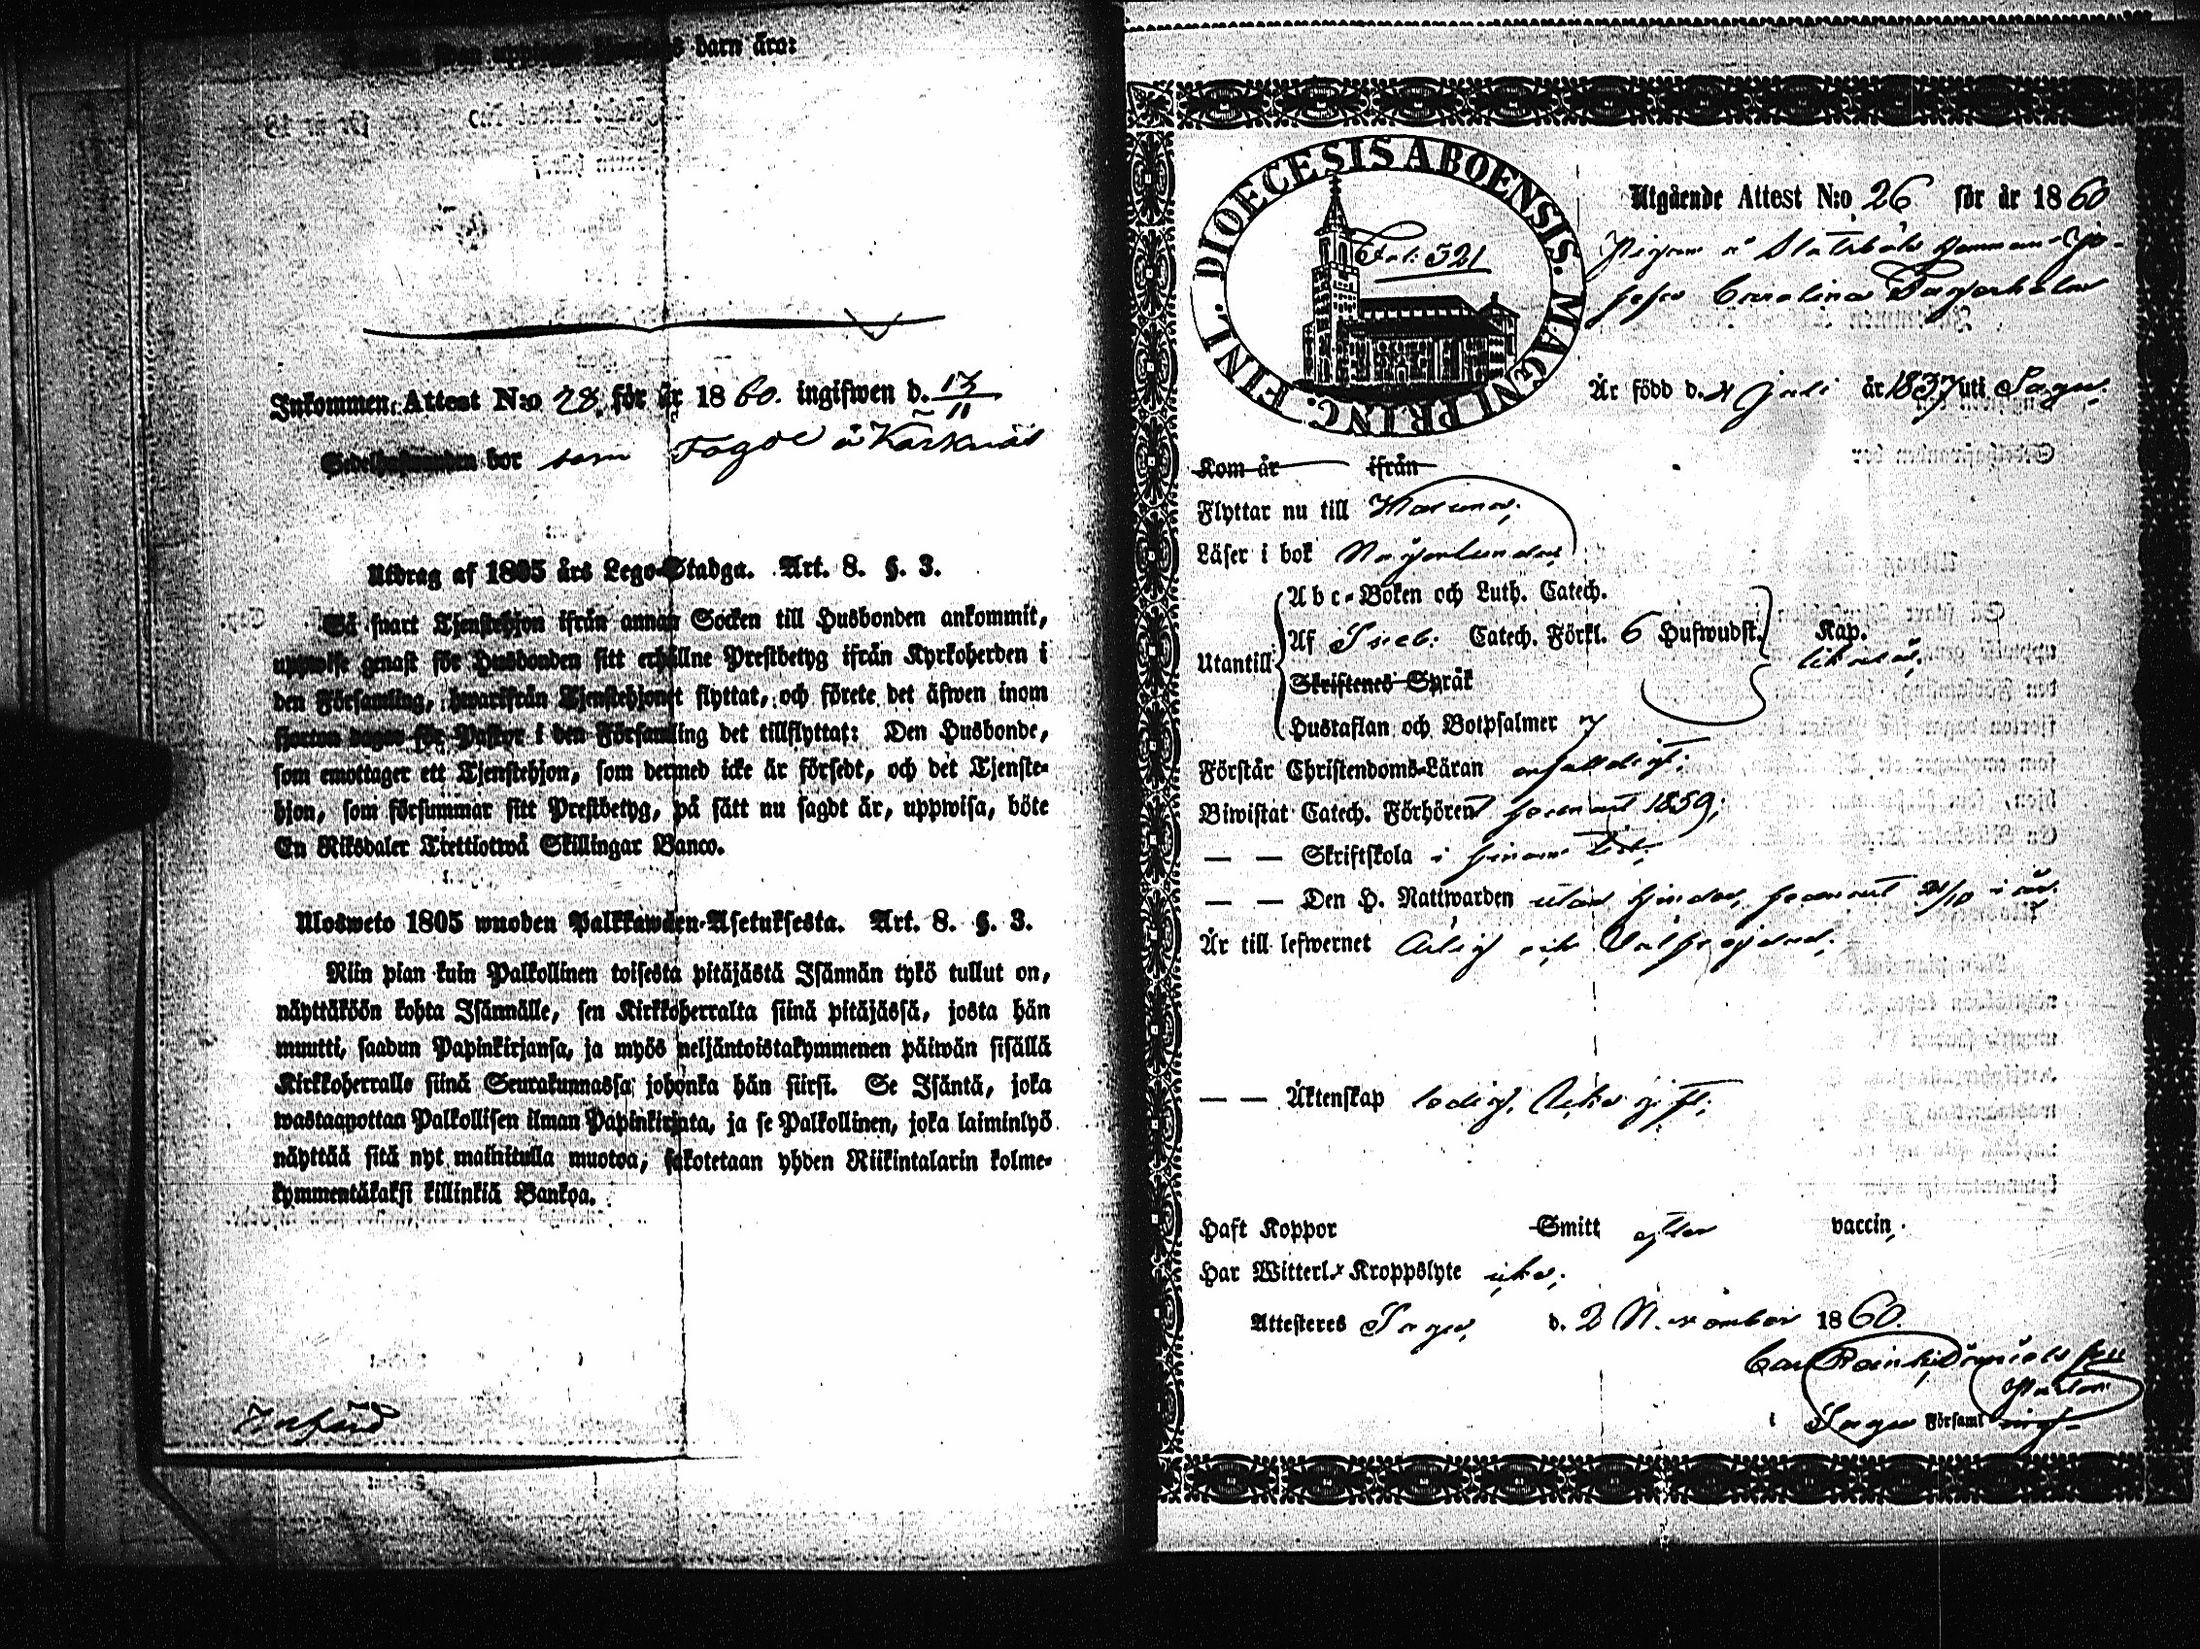 barn äro:
Inkommen Attest N:o 28. för år 1860. ingifwen d. 13/11
bor som Fogde å Karknäs
Utdrag af 1805 års Lego-Stadga. Art. 8. §. 3.
Så snart Tjenstehjon ifrån annan Socken till Husbonden ankommit,
uppwise genast för Husbonden sitt erhållne Prestbetyg ifrån Kyrkoherden i
den Församling, hwarifrån Tjenstehjonet flyttat, och förete det äfwen inom
fjorton dagar för Pastor i den Församling det tillflyttat: Den Husbonde,
som emottager ett Tjenstehjon, som dermed icke är försedt, och det Tjenste-
hjon, som försummar sitt Prestbetyg, på sätt nu sagdt är, uppwisa, böte
En Riksdaler Trettiotwå Skillingar Banco.
Ulosweto 1805 wuoden Palkkawäen-Asetuksesta. Art. 8. §. 3.
Niin pian kuin Palkollinen toisesta pitäjästä Isännän tykö tullut on,
näyttäköön kohta Isännälle, sen Kirkkoherralta siinä pitäjässä, josta hän
muutti, saadun Papinkirjansa, ja myös neljäntoistakymmenen päiwän sisällä
Kirkkoherralle siinä Seurakunnassa johonka hän siirsi. Se Isäntä, joka
wastaanottaa Palkollisen ilman Papinkirjata, ja se Palkollinen, joka laiminlyö
näyttää sitä nyt mainitulla muotoa, sakotetaan yhden Riikintalarin kolme-
kymmentäkaksi killinkiä Bankoa.
Införd
DIOECESIS ABOENSIS. MAGNI PRINC. FINL.
Fol: 321
Utgående Attest N:o 26 för år 1860
Pigan å
Carolina
Är född d. 4 Juli år 1837 uti Sagu.
Kom år ifrån
Flyttar nu till
Läser i bok
Abc-Boken och Luth. Catech.
Utantill Af Sveb. Catech. Förkl. 6 Hufwudst. Kap.
Skriftenes Språk
Hustaflan och Botpsalmer 7
Förstår Christendoms-Läran
Biwistat Catech. Förhören 1859;
— — Skriftskola i
— — Den H. Nattwarden utan hinder, i år.
Är till lefwernet ärlig och
— — Äktenskap ledig,
Haft Koppor Smitt efter vaccin,
Har Witterl. Kroppslyte icke;
Attesteres Sagu, d. 2 November 1860.
Pastor
i Sagu Församling